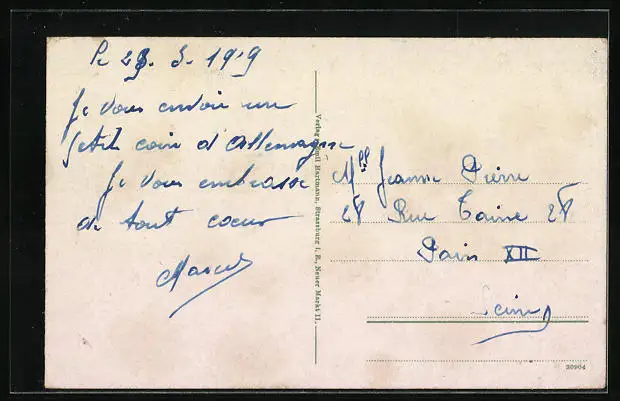 Le 23. 3. 1919
Je vous envoie un
petit coin d'Allemagne
Je vous embrasse
de tout coeur
Marcel
Verlag Emil Hartmann, Strassburg i. E., Neuer Markt 11.
Mlle Jeanne Pierre
28 Rue Taine 28
Paris XII
Seine
30904